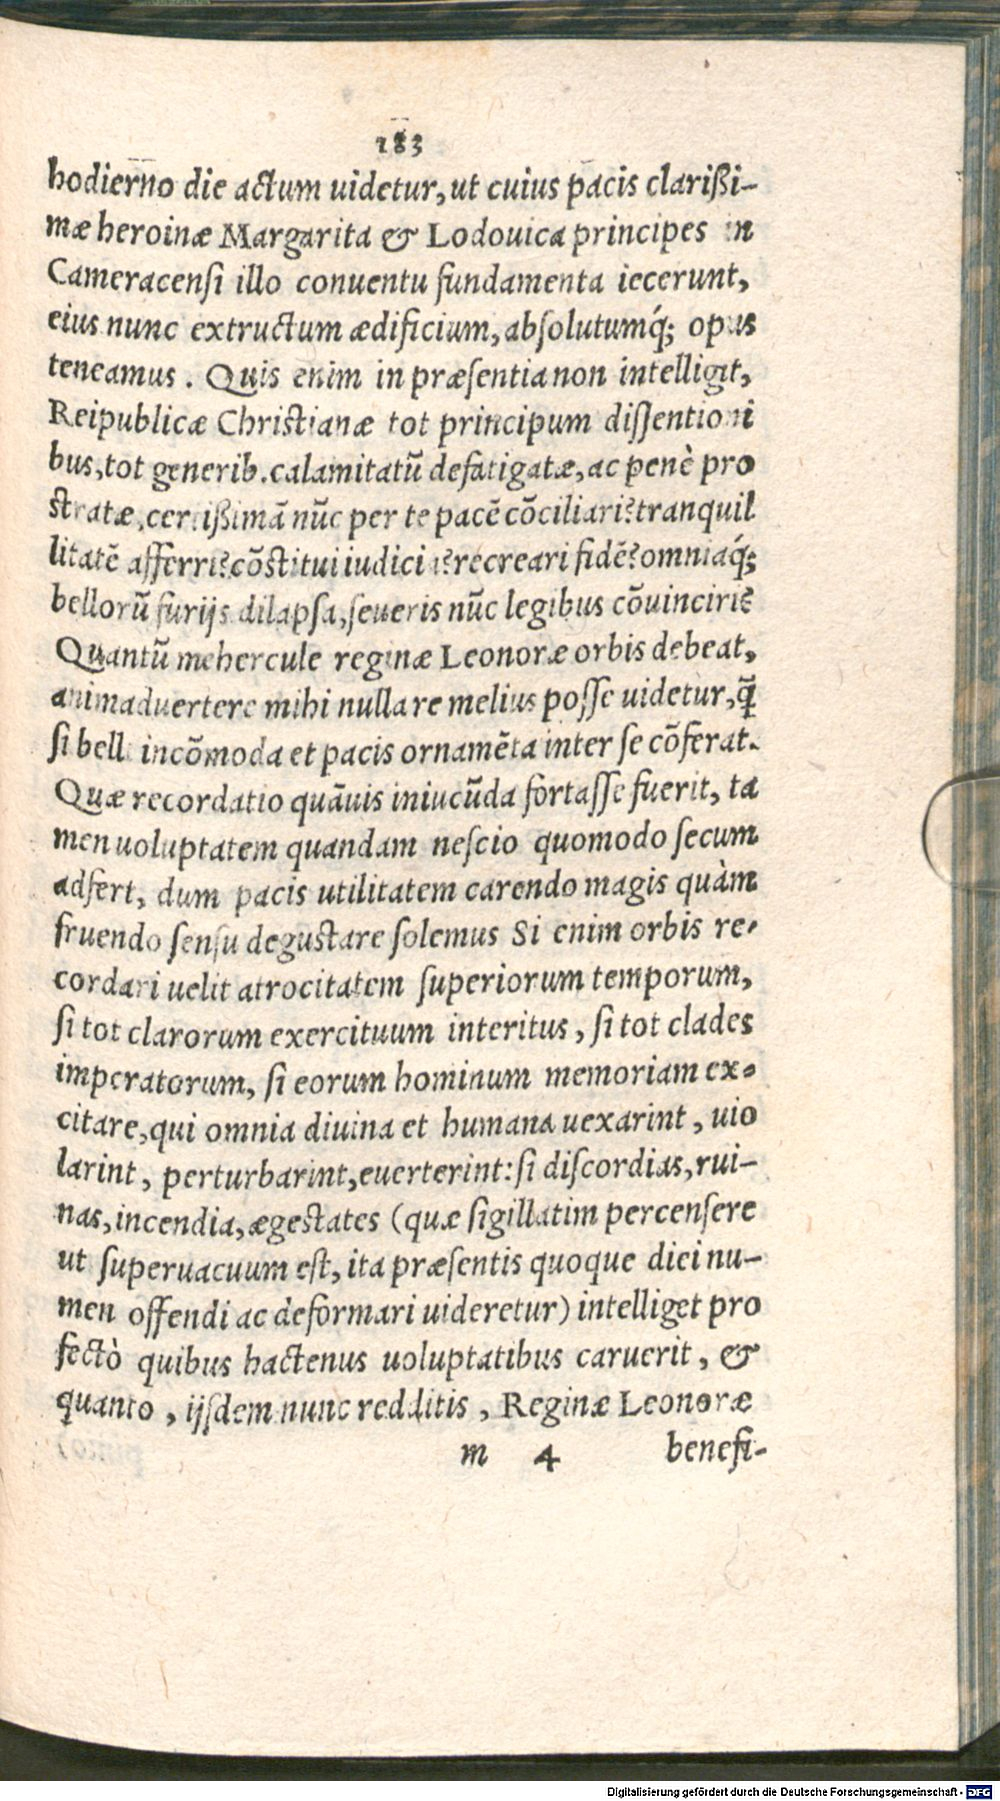 183
hodierno die actum uidetur, ut cuius pacis clarißi-
mæ heroinæ Margarita & Lodouica principes in
Cameracensi illo conuentu fundamenta iecerunt,
eius nunc extructum ædificium, absolutumq́; opus
teneamus. Quis enim in præsentia non intelligit,
Reipublicæ Christianæ tot principum dissentioni
bus, tot generib. calamitatū defatigatæ, ac penè pro
stratæ, certißimā nūc per te pacē cōciliari? tranquil
litatē afferri? cōstitui iudicia? recreari fidē? omniaq́;
bellorū furijs dilapsa, seueris nūc legibus cōuinciri?
Quantū mehercule reginæ Leonoræ orbis debeat,
animaduertere mihi nulla re melius posse uidetur, q̄
si belli incōmoda et pacis ornamēta inter se cōferat.
Quæ recordatio quāuis iniucūda fortasse fuerit, ta
men uoluptatem quandam nescio quomodo secum
adfert, dum pacis utilitatem carendo magis quàm
fruendo sensu degustare solemus Si enim orbis re-
cordari uelit atrocitatem superiorum temporum,
si tot clarorum exercituum interitus, si tot clades
imperatorum, si eorum hominum memoriam ex-
citare, qui omnia diuina et humana uexarint, uio
larint, perturbarint, euerterint: si discordias, rui-
nas, incendia, ægestates (quæ sigillatim percensere
ut superuacuum est, ita præsentis quoque diei nu-
men offendi ac deformari uideretur) intelliget pro
fectò quibus hactenus uoluptatibus caruerit, &
quanto, ijsdem nunc redditis, Reginæ Leonoræ
m 4 benefi-
Digitalisierung gefördert durch die Deutsche Forschungsgemeinschaft - DFG